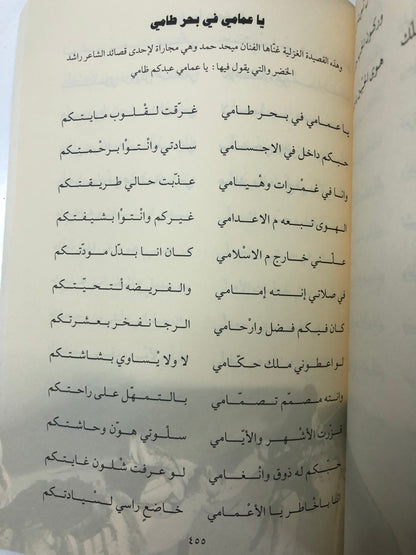 يا عمامي في بحر طامي
وهذه القصيدة الغزلية غنّاها الفنان ميحد حمد وهي مجاراة لإحدى قصائد الشاعر راشد
الخضر والتي يقول فيها: يا عمامي عبدكم ظامي
يا عمامي في بحر طامي غرّقت لقْلوب مايتكم
حبكم داخل في الاجسامي سادتي وانتوا برحْمتكم
وانا في غمْرات وهْيامي عذّبت حالي طريقتكم
الهوى تبعه م الاعدامي غيركم وانتوا بشيفتكم
علّني خارج م الاسْلامي كان انا بدّل مودّتكم
في صلاتي إنته إمامي والفريضه لْتحيّتكم
كان فيكم فضل وارْحامي الرجا نفخر بعشرتكم
لو اعطوني ملك حكّامي لا ولا يْساوي بشاشتكم
وانته مصمّم تصمّامي بالتمهّل على راحتكم
فزّرت الأشهر والأيّامي سلّوتي هوّن وحاشتكم
حبّكم له ذوق وانْغامي لو عرفت شْلون غايتكم
بالخاطر يا الأعْمامي خاضعٍ راسي لسْيادتكم
٤٥٥